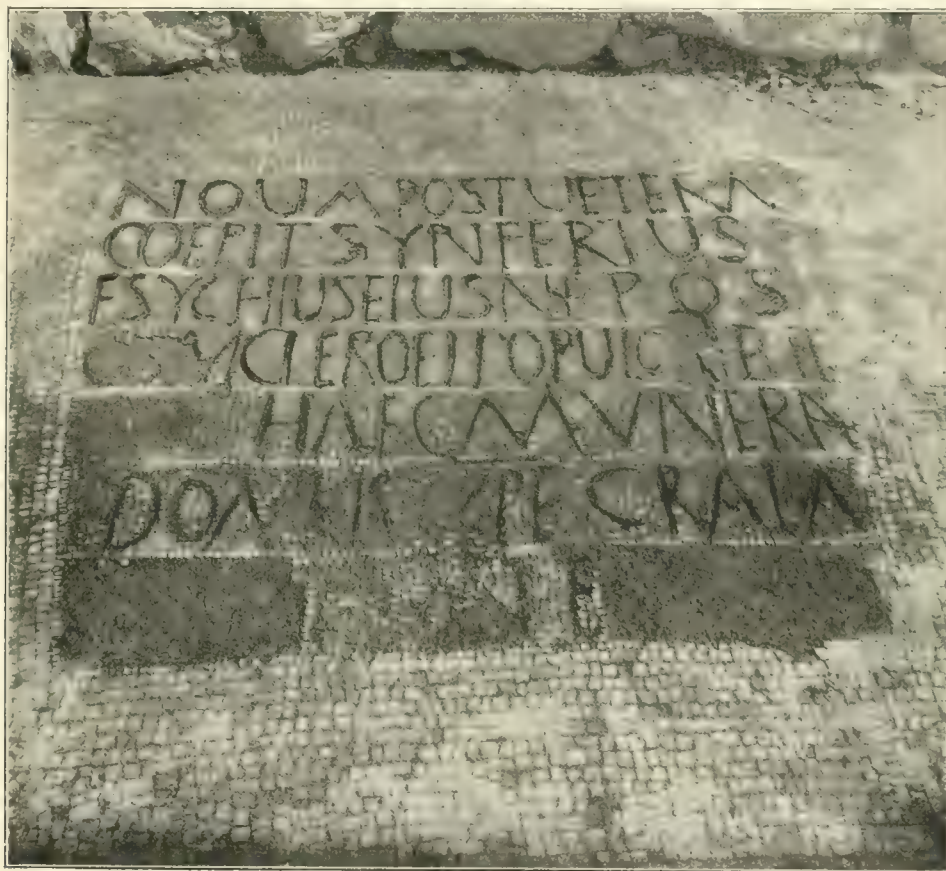 NOUA POST UETERA
COEPIT SYNFERIUS
ESYCHIUS EIUS NEPOS
CLERO ET POPULO
HAEC MVNERA
GRATA